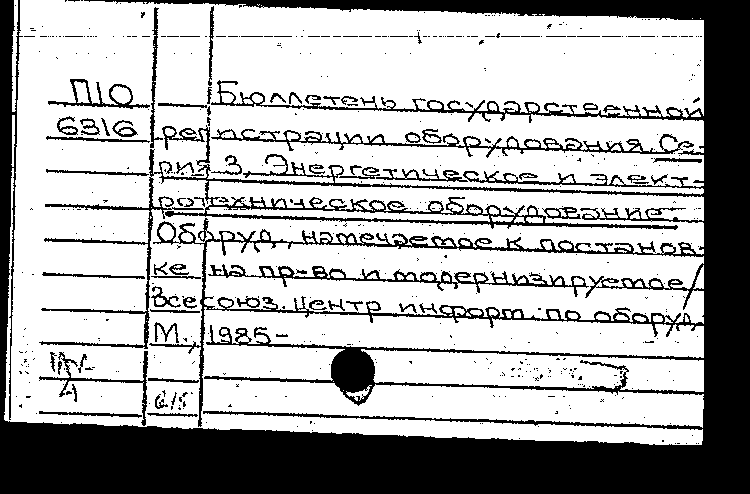 П10 Бюллетень государственной
6316 регистрации оборудования. Се-
рия 3, Энергетическое и элект-
ротехническое оборудование.
Оборуд., намечаемое к постанов-
ке на пр-во и модернизируемое/
Всесоюз. центр информ. по оборуд.
М., 1985-